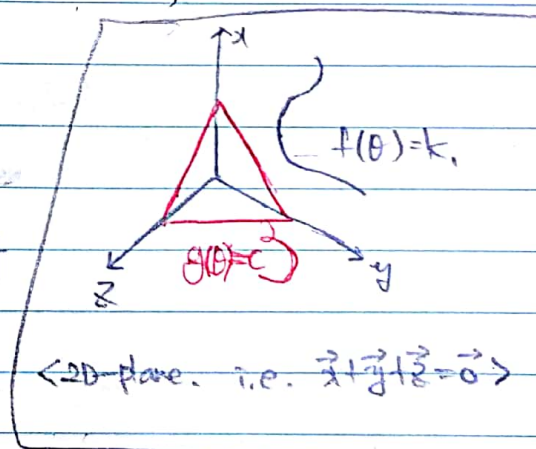 x
f(θ)=k,
g(θ)=c
y
z
<2D-plane. i.e. x⃗+y⃗+z⃗=0⃗>